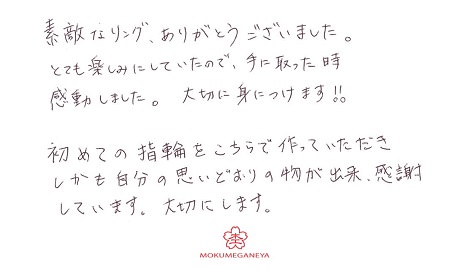 素敵なリング、ありがとうございました。
とても楽しみにしていたので、手に取った時
感動しました。 大切に身につけます!!
初めての指輪をこちらで作っていただき
しかも自分の思いどおりの物が出来、感謝
しています。大切にします。
MOKUMEGANEYA